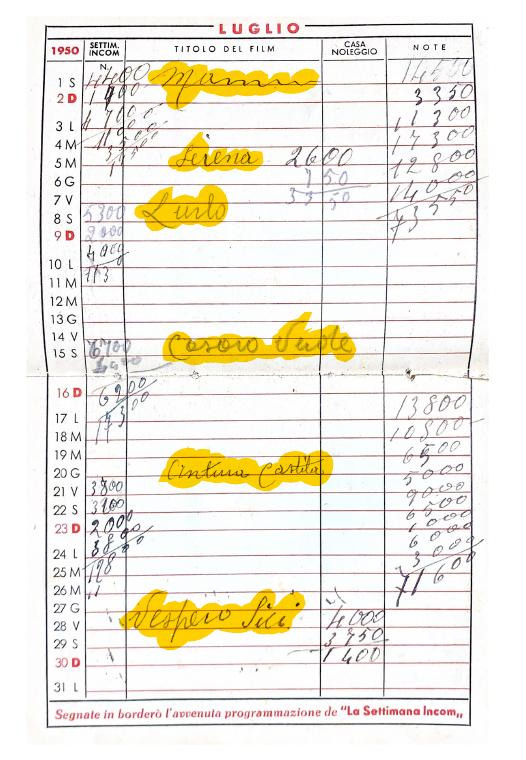 LUGLIO
1950 SETTIM. INCOM N. TITOLO DEL FILM CASA NOLEGGIO NOTE
1 S 4400 14500
2 D 3350
3 L 11300
4 M 17300
5 M Serena 2600 12800
6 G 750 14000
7 V 3350 73550
8 S 5300 Lurlo
9 D 2000
10 L 4000
11 M 113
12 M
13 G
14 V
15 S 6700
16 D 6200
17 L 17300 13800
18 M 10800
19 M 6500
20 G Cintura Castità 5000
21 V 3800 9000
22 S 3100 6500
23 D 2000 1000
24 L 3800 6000
25 M 128 3000
26 M 11 71600
27 G Vespero Sici 4000
28 V 3750
29 S 1400
30 D
31 L
Segnate in borderò l'avvenuta programmazione de "La Settimana Incom„